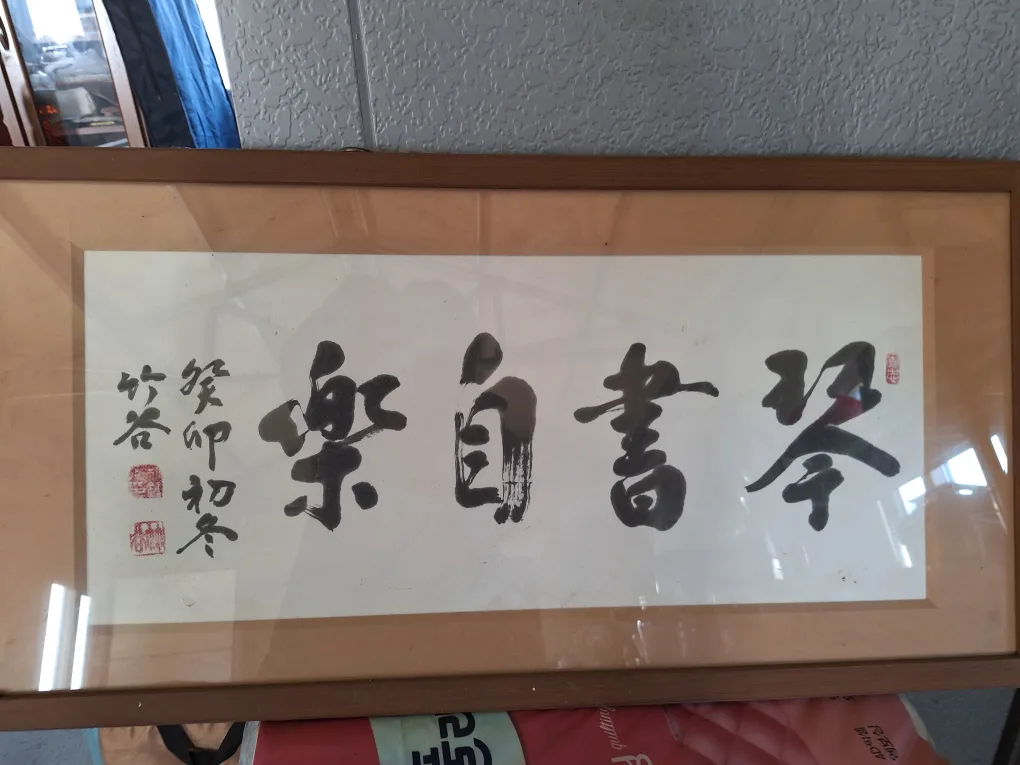 琴書自樂
癸卯初冬
竹谷